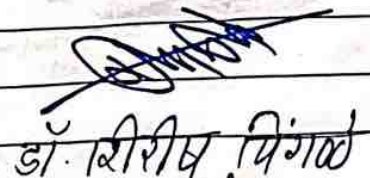 डॉ. शिरीष पिंगळे